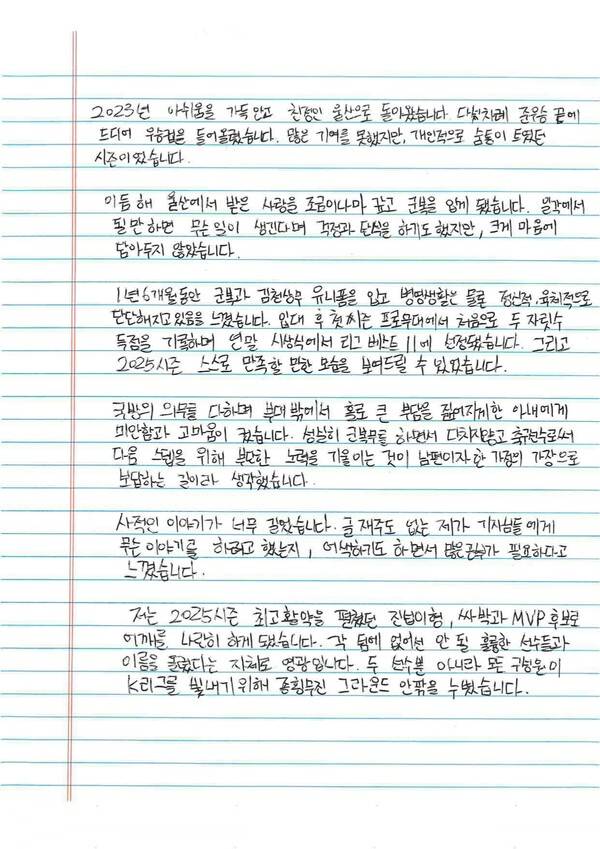 2023년 아쉬움을 가득 안고 친정인 울산으로 돌아왔습니다. 다섯차례 준우승 끝에
드디어 우승컵을 들어올렸습니다. 많은 기여를 못했지만, 개인적으로 숨통이 트였던
시즌이었습니다.
이듬 해 울산에서 받은 사랑을 조금이나마 갚고 군복을 입게 됐습니다. 일각에서
될만하면 무슨 일이 생긴다며 걱정과 탄식을 하기도 했지만, 크게 마음에
담아두지 않았습니다.
1년 6개월동안 군복과 김천상무 유니폼을 입고 병영생활은 물론 정신적, 육체적으로
단단해지고 있음을 느꼈습니다. 입대 후 첫 시즌 프로무대에서 처음으로 두 자릿수
득점을 기록하며 연말 시상식에서 리그 베스트 11에 선정됐습니다. 그리고
2025시즌 스스로 만족할 만한 모습을 보여드릴 수 있었습니다.
국방의 의무를 다하며 부대 밖에서 홀로 큰 부담을 짊어지게한 아내에게
미안함과 고마움이 컸습니다. 성실히 군복무를 하면서 다치지않고 축구선수로써
다음 스텝을 위해 부단한 노력을 기울이는 것이 남편이자 한 가정의 가장으로
보답하는 길이라 생각했습니다.
사적인 이야기가 너무 길었습니다. 글 재주도 없는 제가 기자님들에게
무슨 이야기를 하려고 했는지, 어색하기도 하면서 많은 공부가 필요하다고
느꼈습니다.
저는 2025시즌 최고 활약을 펼쳤던 진섭이형, 싸박과 MVP 후보로
어깨를 나란히 하게 됐습니다. 각 팀에 없어선 안 될 훌륭한 선수들과
이름을 올렸다는 자체로 영광입니다. 두 선수뿐 아니라 모든 구성원이
K리그를 빛내기 위해 종횡무진 그라운드 안팎을 누볐습니다.